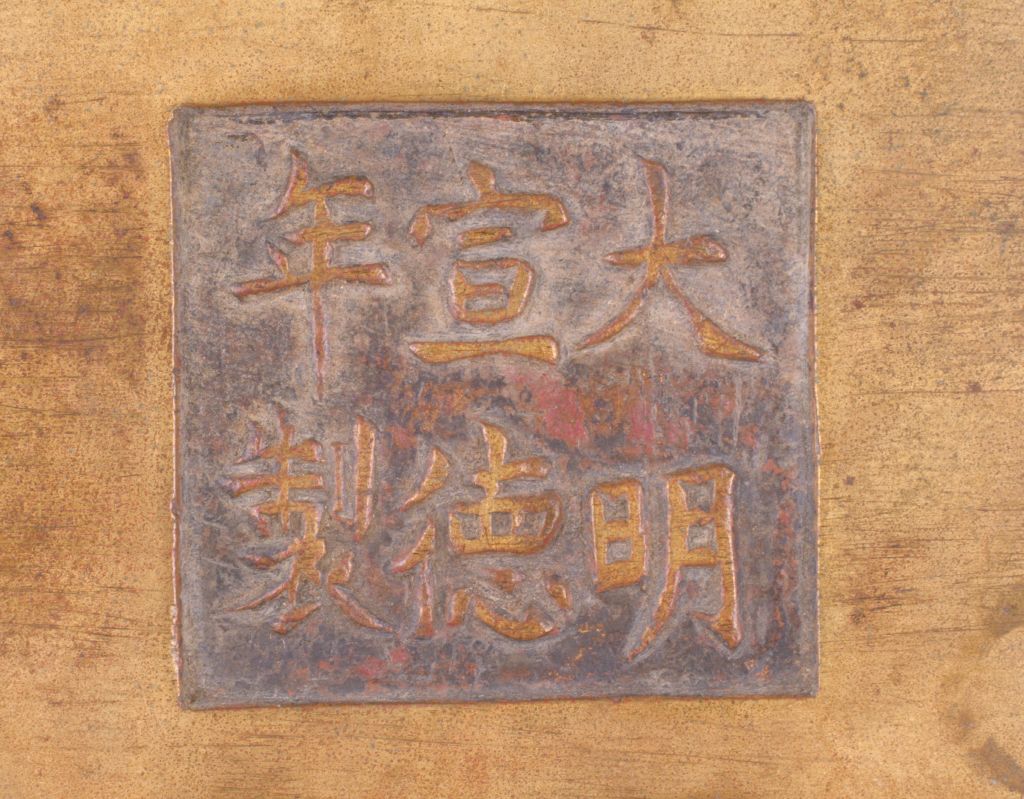 大明
宣徳
年製